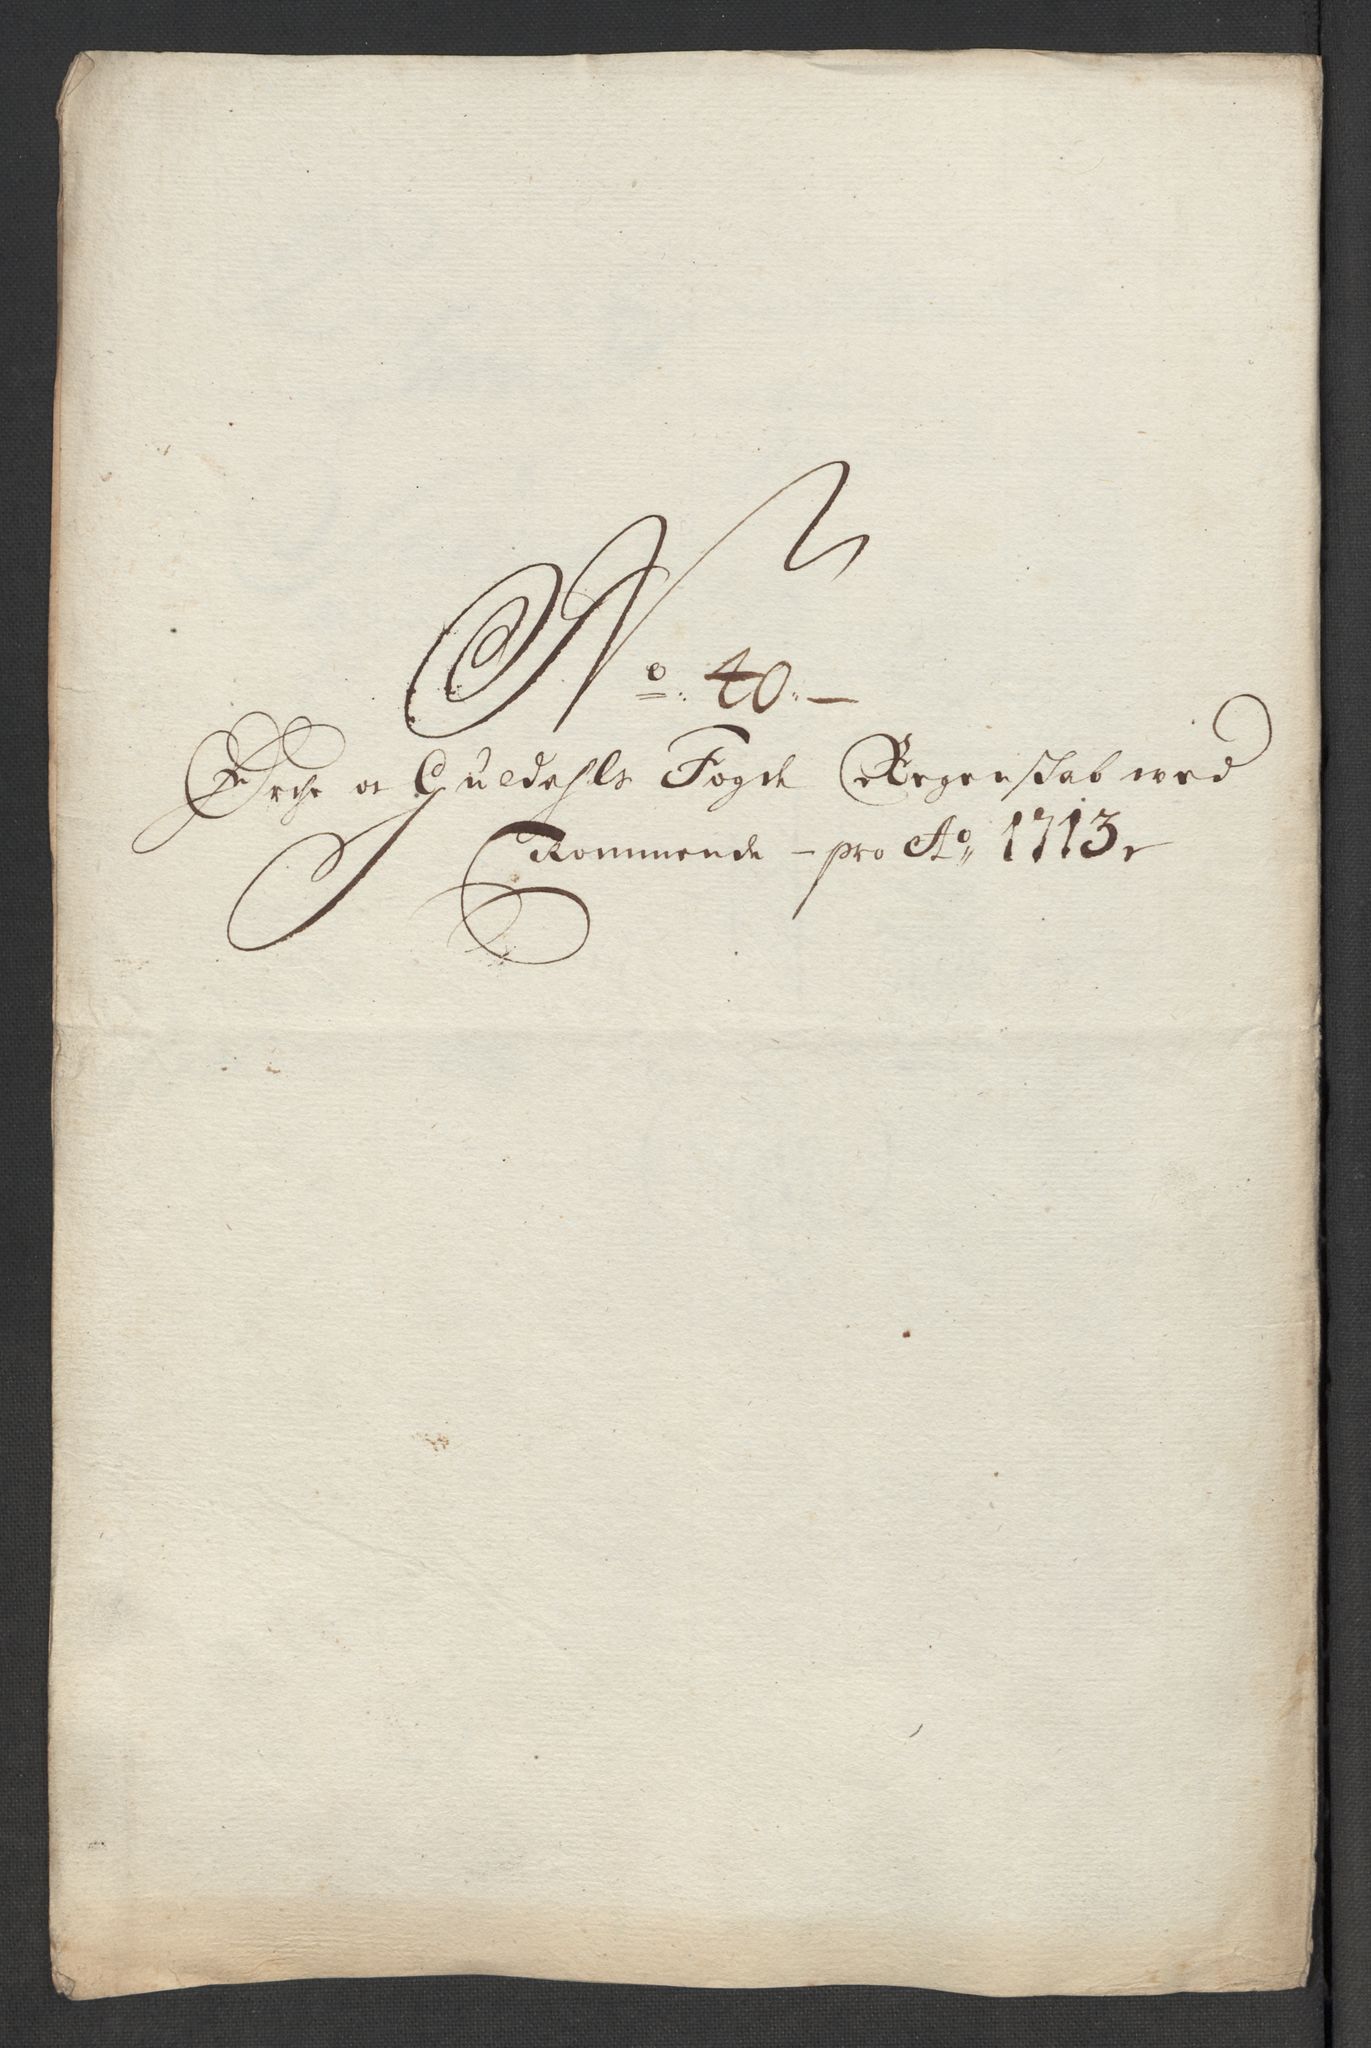 No: 40.—
Orche oc Guldahls Fogde Regenskab wed
Kommende – pro Ao 1713